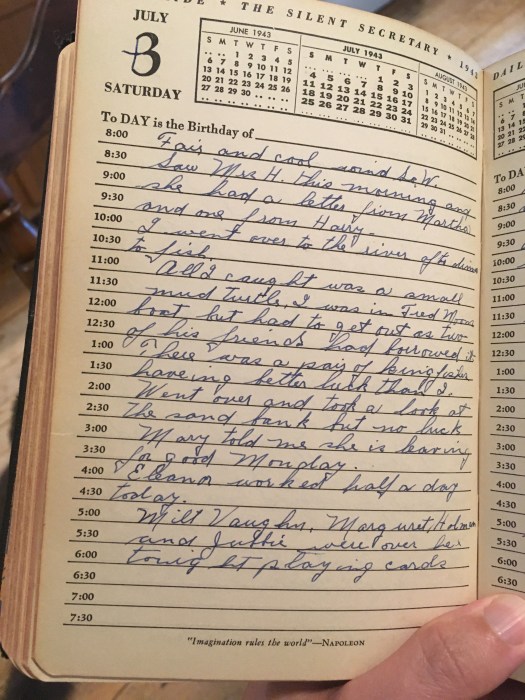 THE SILENT SECRETARY ★ 194
JULY
3
SATURDAY
JUNE 1943
S M T W T F S
.. .. 1 2 3 4 5
6 7 8 9 10 11 12
13 14 15 16 17 18 19
20 21 22 23 24 25 26
27 28 29 30 .. .. ..
JULY 1943
S M T W T F S
.. .. .. .. 1 2 3
4 5 6 7 8 9 10
11 12 13 14 15 16 17
18 19 20 21 22 23 24
25 26 27 28 29 30 31
AUGUST 1943
S M T W T F S
1 2 3 4 5 6 7
8 9 10 11 12 13 14
15 16 17 18 19 20 21
22 23 24 25 26 27 28
29 30 31 .. .. .. ..
To DAY is the Birthday of
8:00 Fair and cool wind S.W.
8:30 Saw Mrs H. this morning and
9:00 she had a letter from Martha
9:30 and one from Harry.
10:00 I went over to the river after dinner
10:30 to fish.
11:00 All I caught was a small
11:30 mud turtle, I was in Fred
12:00 boat, but had to get out as two
12:30 of his friends had borrowed it
1:00 There was a pair of kingfisher
1:30 haveing better luck than I.
2:00 Went over and took a look at
2:30 the sand bank but no luck
3:00 Mary told me she is leaving
3:30 for good Monday.
4:00 Eleanor worked half a day
4:30 today.
5:00 Milt Vaughn, Marguret, Holman
5:30 and were over here
6:00 tonight playing cards
6:30
7:00
7:30
"Imagination rules the world"—NAPOLEON
DAIL
To DA
8:00
8:30
9:00
9:30
10:00
10:30
11:00
11:30
12:00
12:30
1:00
1:30
2:00
2:30
3:00
3:30
4:00
4:30
5:00
5:30
6:00
6:30